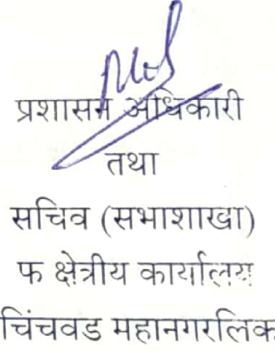 प्रशासन अधिकारी
तथा
सचिव (सभाशाखा)
फ क्षेत्रीय कार्यालय
चिंचवड महानगरलिक